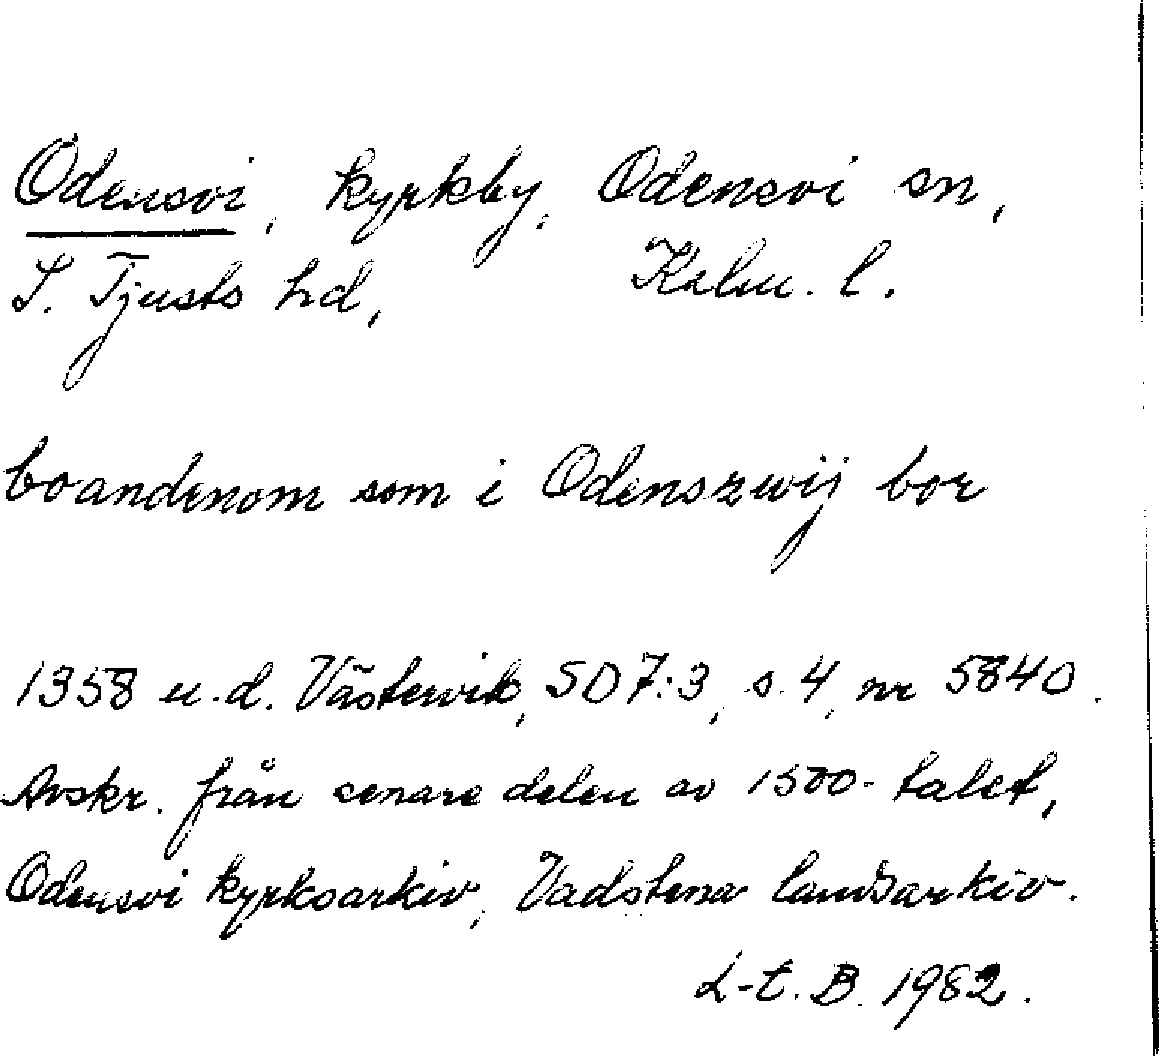 Odensvi, kyrkby, Odensvi sn,
S. Tjusts hd, Kalm. l.
boandenom som i Odenszwij bor
1358 u.d. Västervik, SD 7:3, s. 4, nr 5840.
Avskr. från senare delen av 1500-talet,
Odensvi kyrkoarkiv, Vadstena landsarkiv.
L-t. B. 1982.